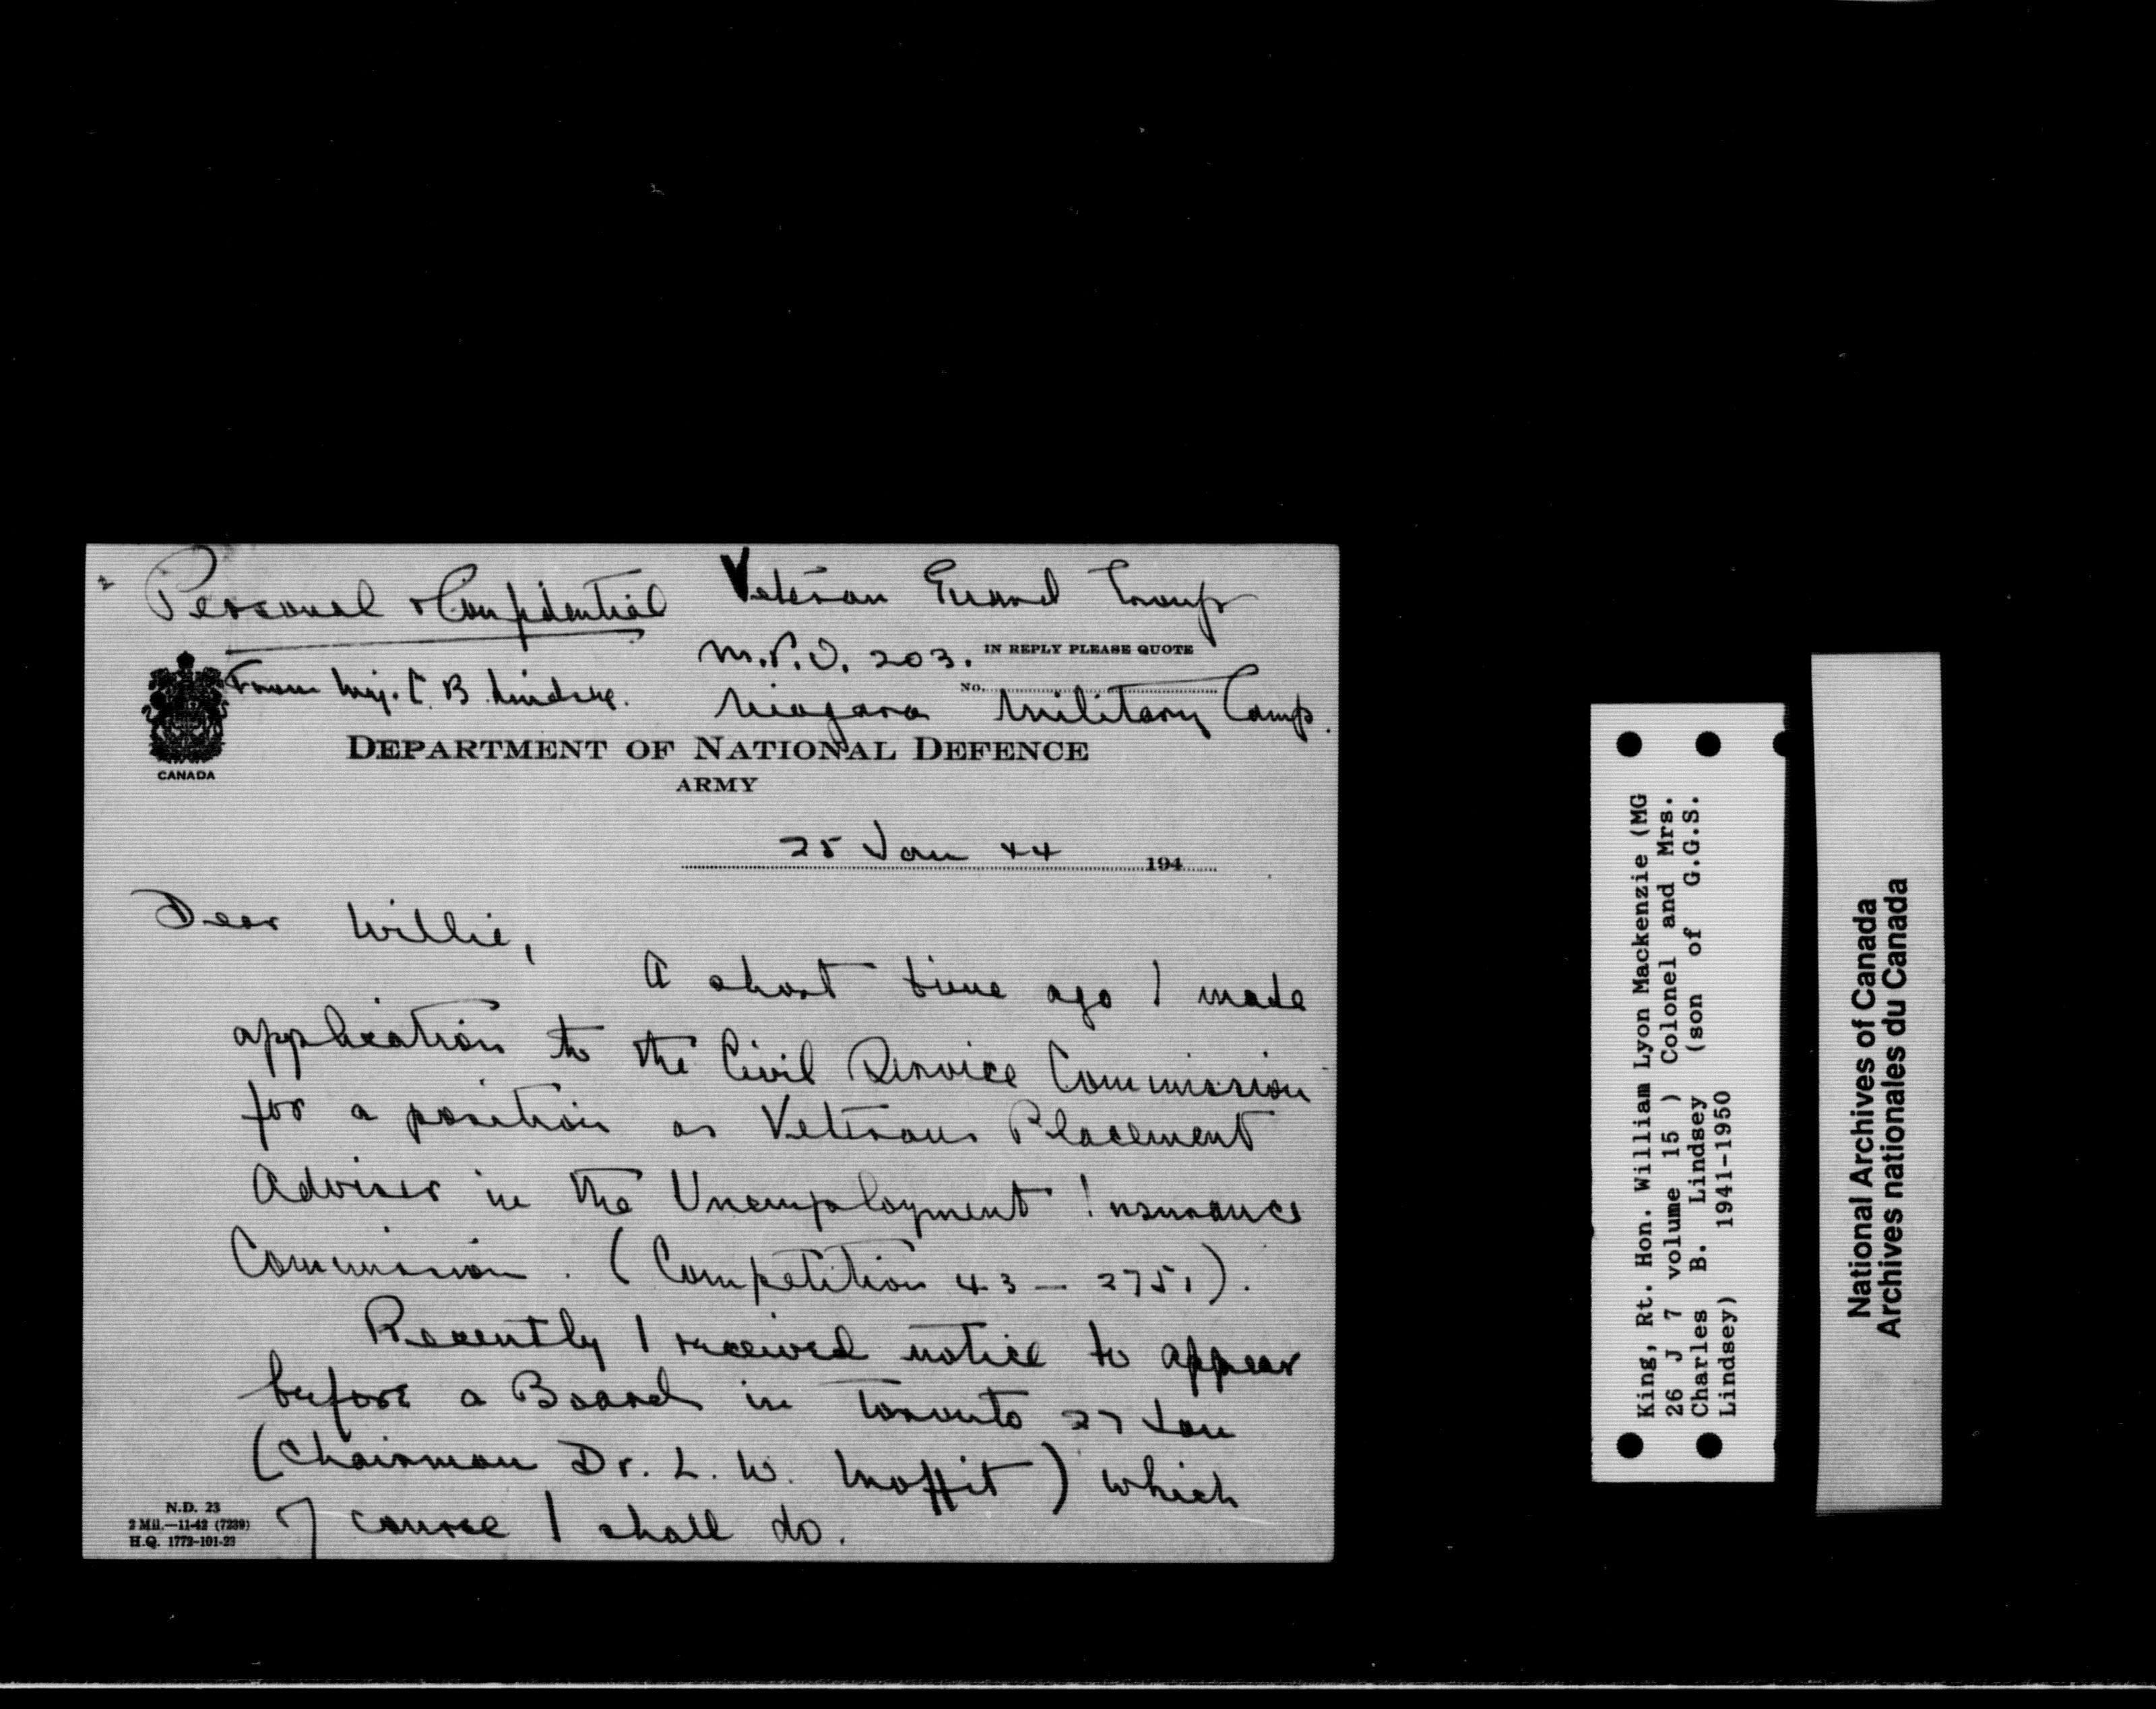 Personal & Confidential
Veteran Guard Group
M.P.O. 203.
IN REPLY PLEASE QUOTE
No.
From Maj. C B Lindsey.
Niagara Military Camp.
CANADA
DEPARTMENT OF NATIONAL DEFENCE
ARMY
25 Jan 44 194
Dear Willie,
A short time ago I made
application to the Civil Service Commission
for a position as Veterans Placement
Adviser in the Unemployment Insurance
Commission. (Competition 43 - 2751).
Recently I received notice to appear
before a Board in Toronto 27 Jan
(Chairman Dr. L. W. Moffit) which
of course I shall do.
N.D. 23
2 Mil.—11-42 (7239)
H.Q. 1772-101-23
King, Rt. Hon. William Lyon Mackenzie (MG
26 J 7 volume 15 ) Colonel and Mrs.
Charles B. Lindsey (son of G.G.S.
Lindsey) 1941-1950
National Archives of Canada
Archives nationales du Canada